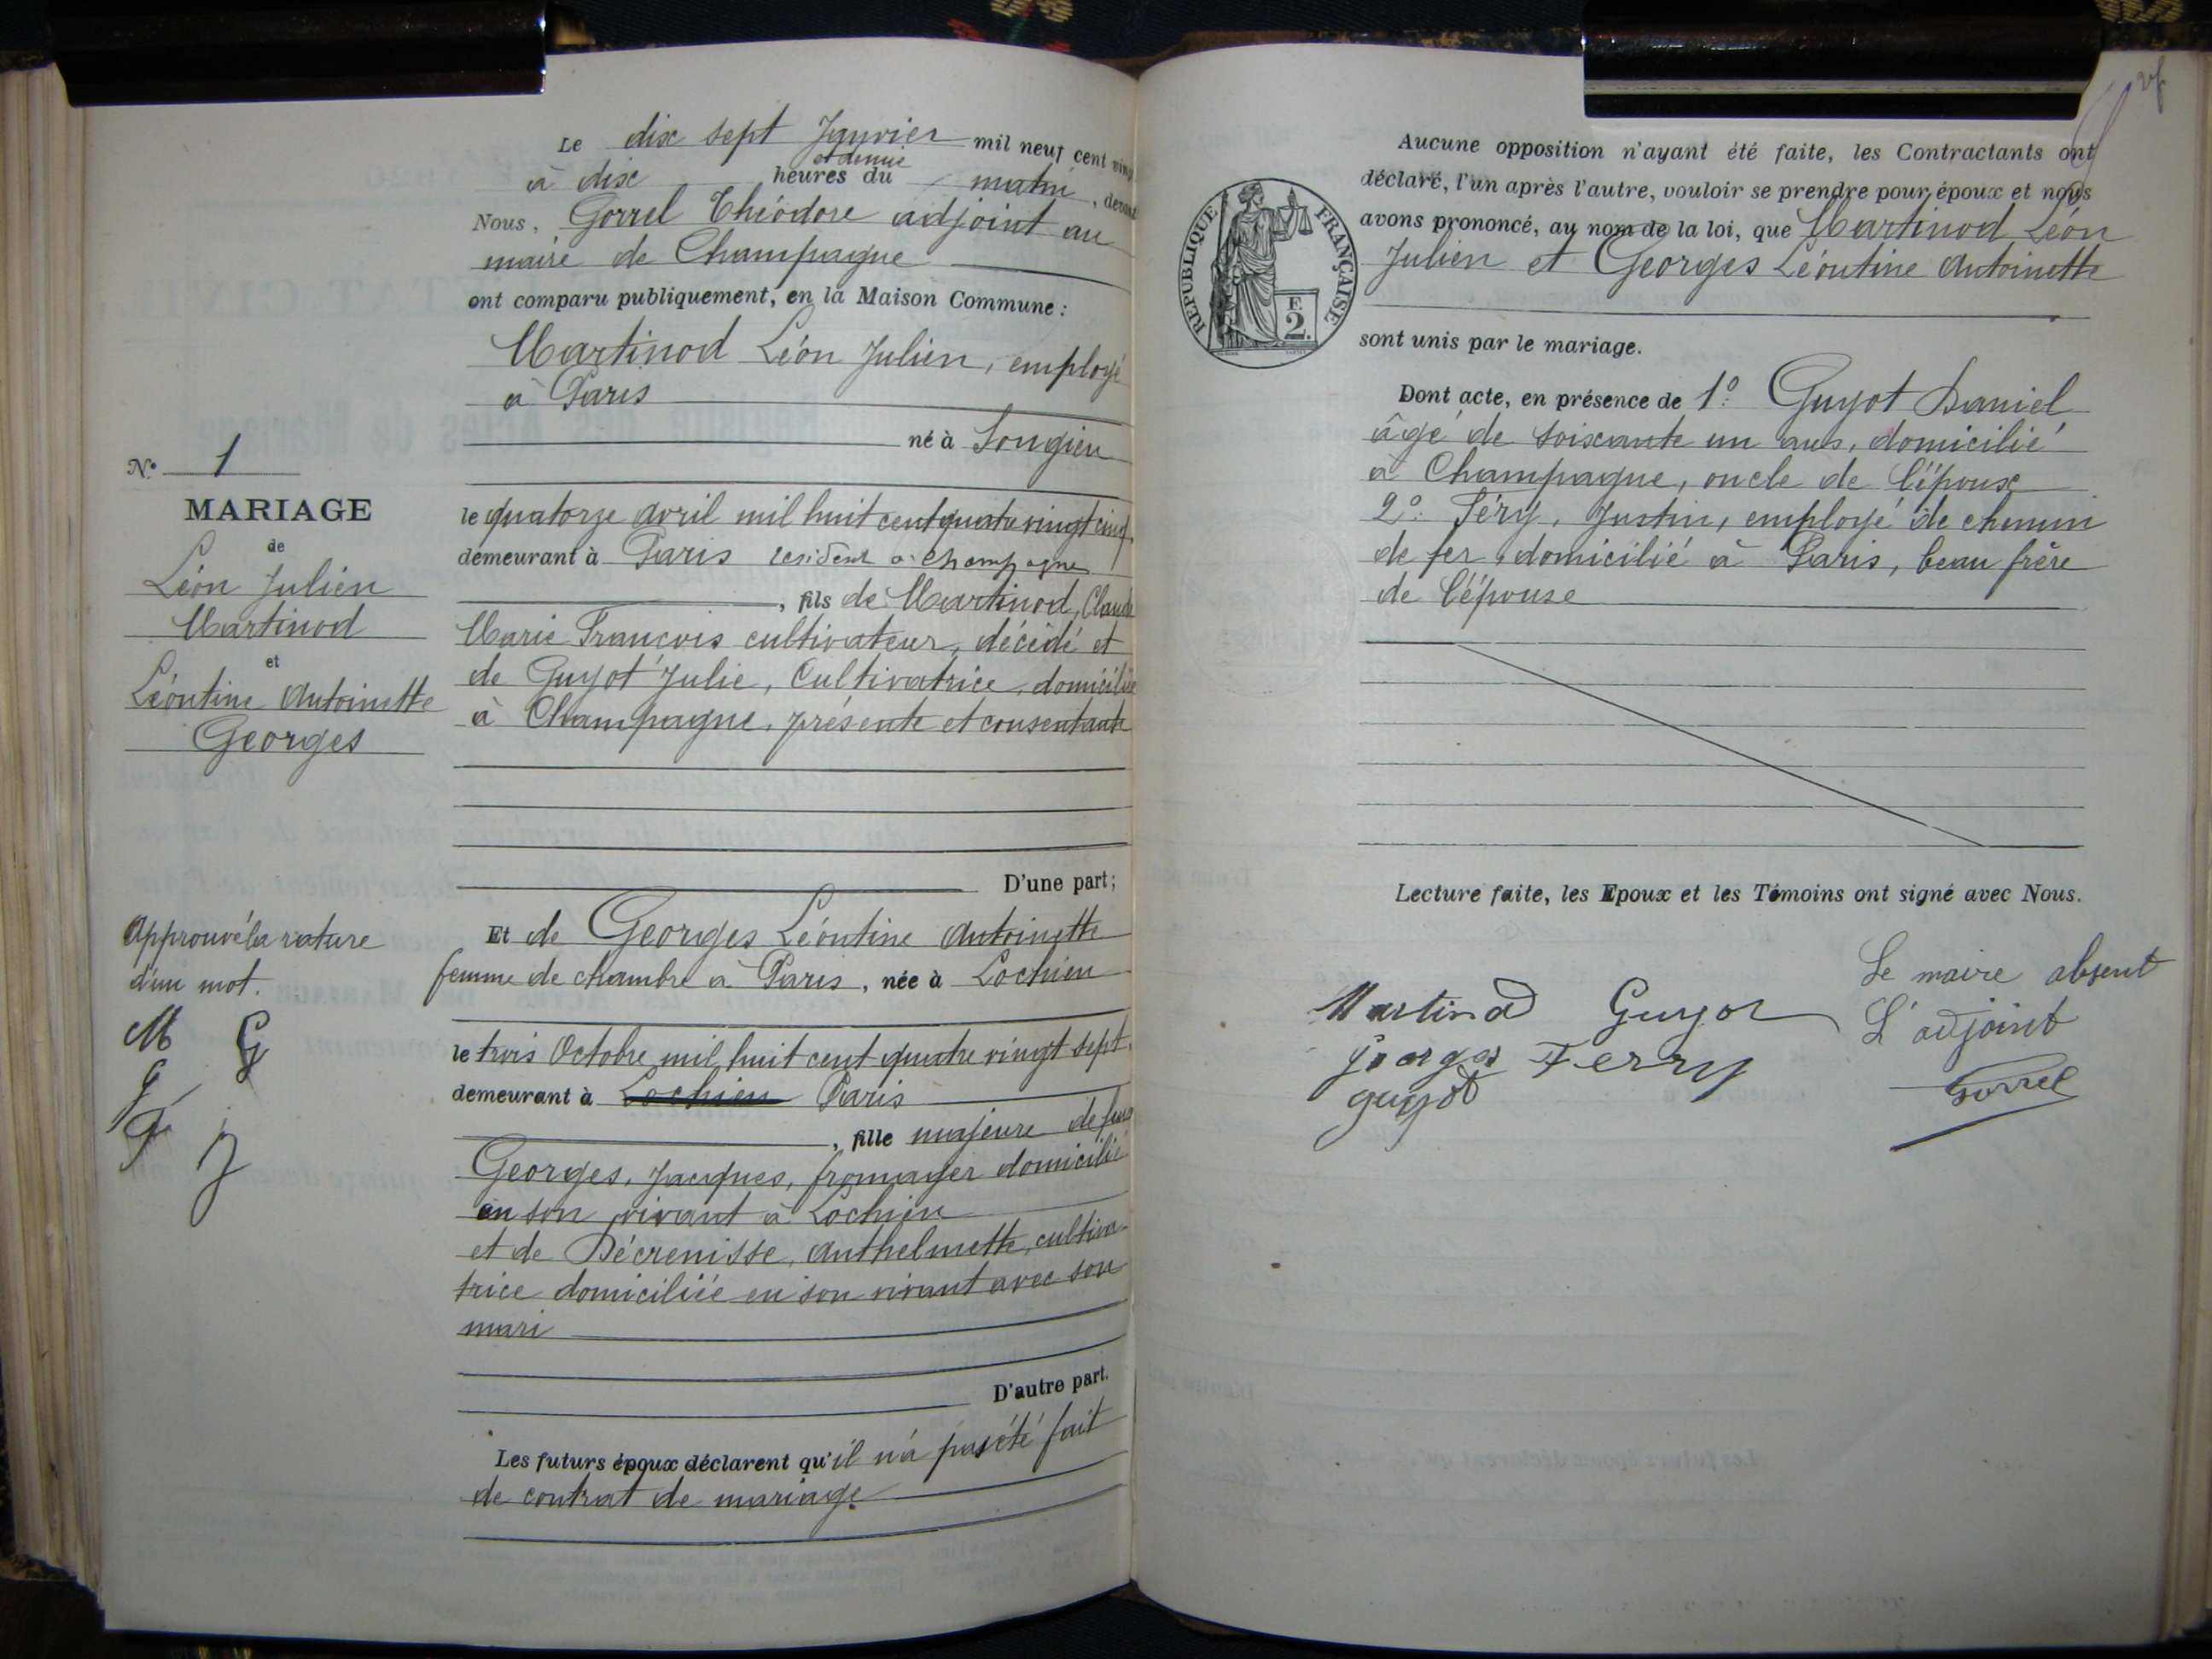 N° 1
MARIAGE
de
Léon Julien
Martinod
et
Léontine Antoinette
Georges
Approuvé la rature
d'un mot.
M G
G
F J
Le dix sept Janvier mil neuf cent vingt
à dix heures et demie du matin, devant
Nous, Gorrel Théodore adjoint au
maire de Champagne
ont comparu publiquement, en la Maison Commune :
Martinod Léon Julien, employé
à Paris
né à Songieu
le quatorze avril mil huit cent quatre vingt cinq,
demeurant à Paris résident à Champagne
, fils de Martinod, Claude
Marie François cultivateur, décédé et
de Guyot Julie, Cultivatrice, domiciliée
à Champagne, présente et consentante
D'une part ;
Et de Georges Léontine Antoinette
femme de chambre à Paris, née à Lochieu
le trois Octobre mil huit cent quatre vingt sept,
demeurant à Lochieu Paris
, fille majeure de feus
Georges, Jacques, fromager domicilié
en son vivant à Lochieu
et de Décrenisse, Anthelmette, cultiva-
trice domiciliée en son vivant avec son
mari
D'autre part.
Les futurs époux déclarent qu'il n'a pas été fait
de contrat de mariage
Aucune opposition n'ayant été faite, les Contractants ont
déclaré, l'un après l'autre, vouloir se prendre pour époux et nous
avons prononcé, au nom de la loi, que Martinod Léon
Julien et Georges Léontine Antoinette
sont unis par le mariage.
RÉPUBLIQUE FRANÇAISE
F.
2.
Dont acte, en présence de 1° Guyot Daniel
âgé de soixante un ans, domicilié
à Champagne, oncle de l'épouse
2° Féry, Justin, employé de chemin
de fer, domicilié à Paris, beau frère
de l'épouse
Lecture faite, les Epoux et les Témoins ont signé avec Nous.
Martinod Guyot
Georges Ferry
guyot
Le maire absent
L'adjoint
Gorrel